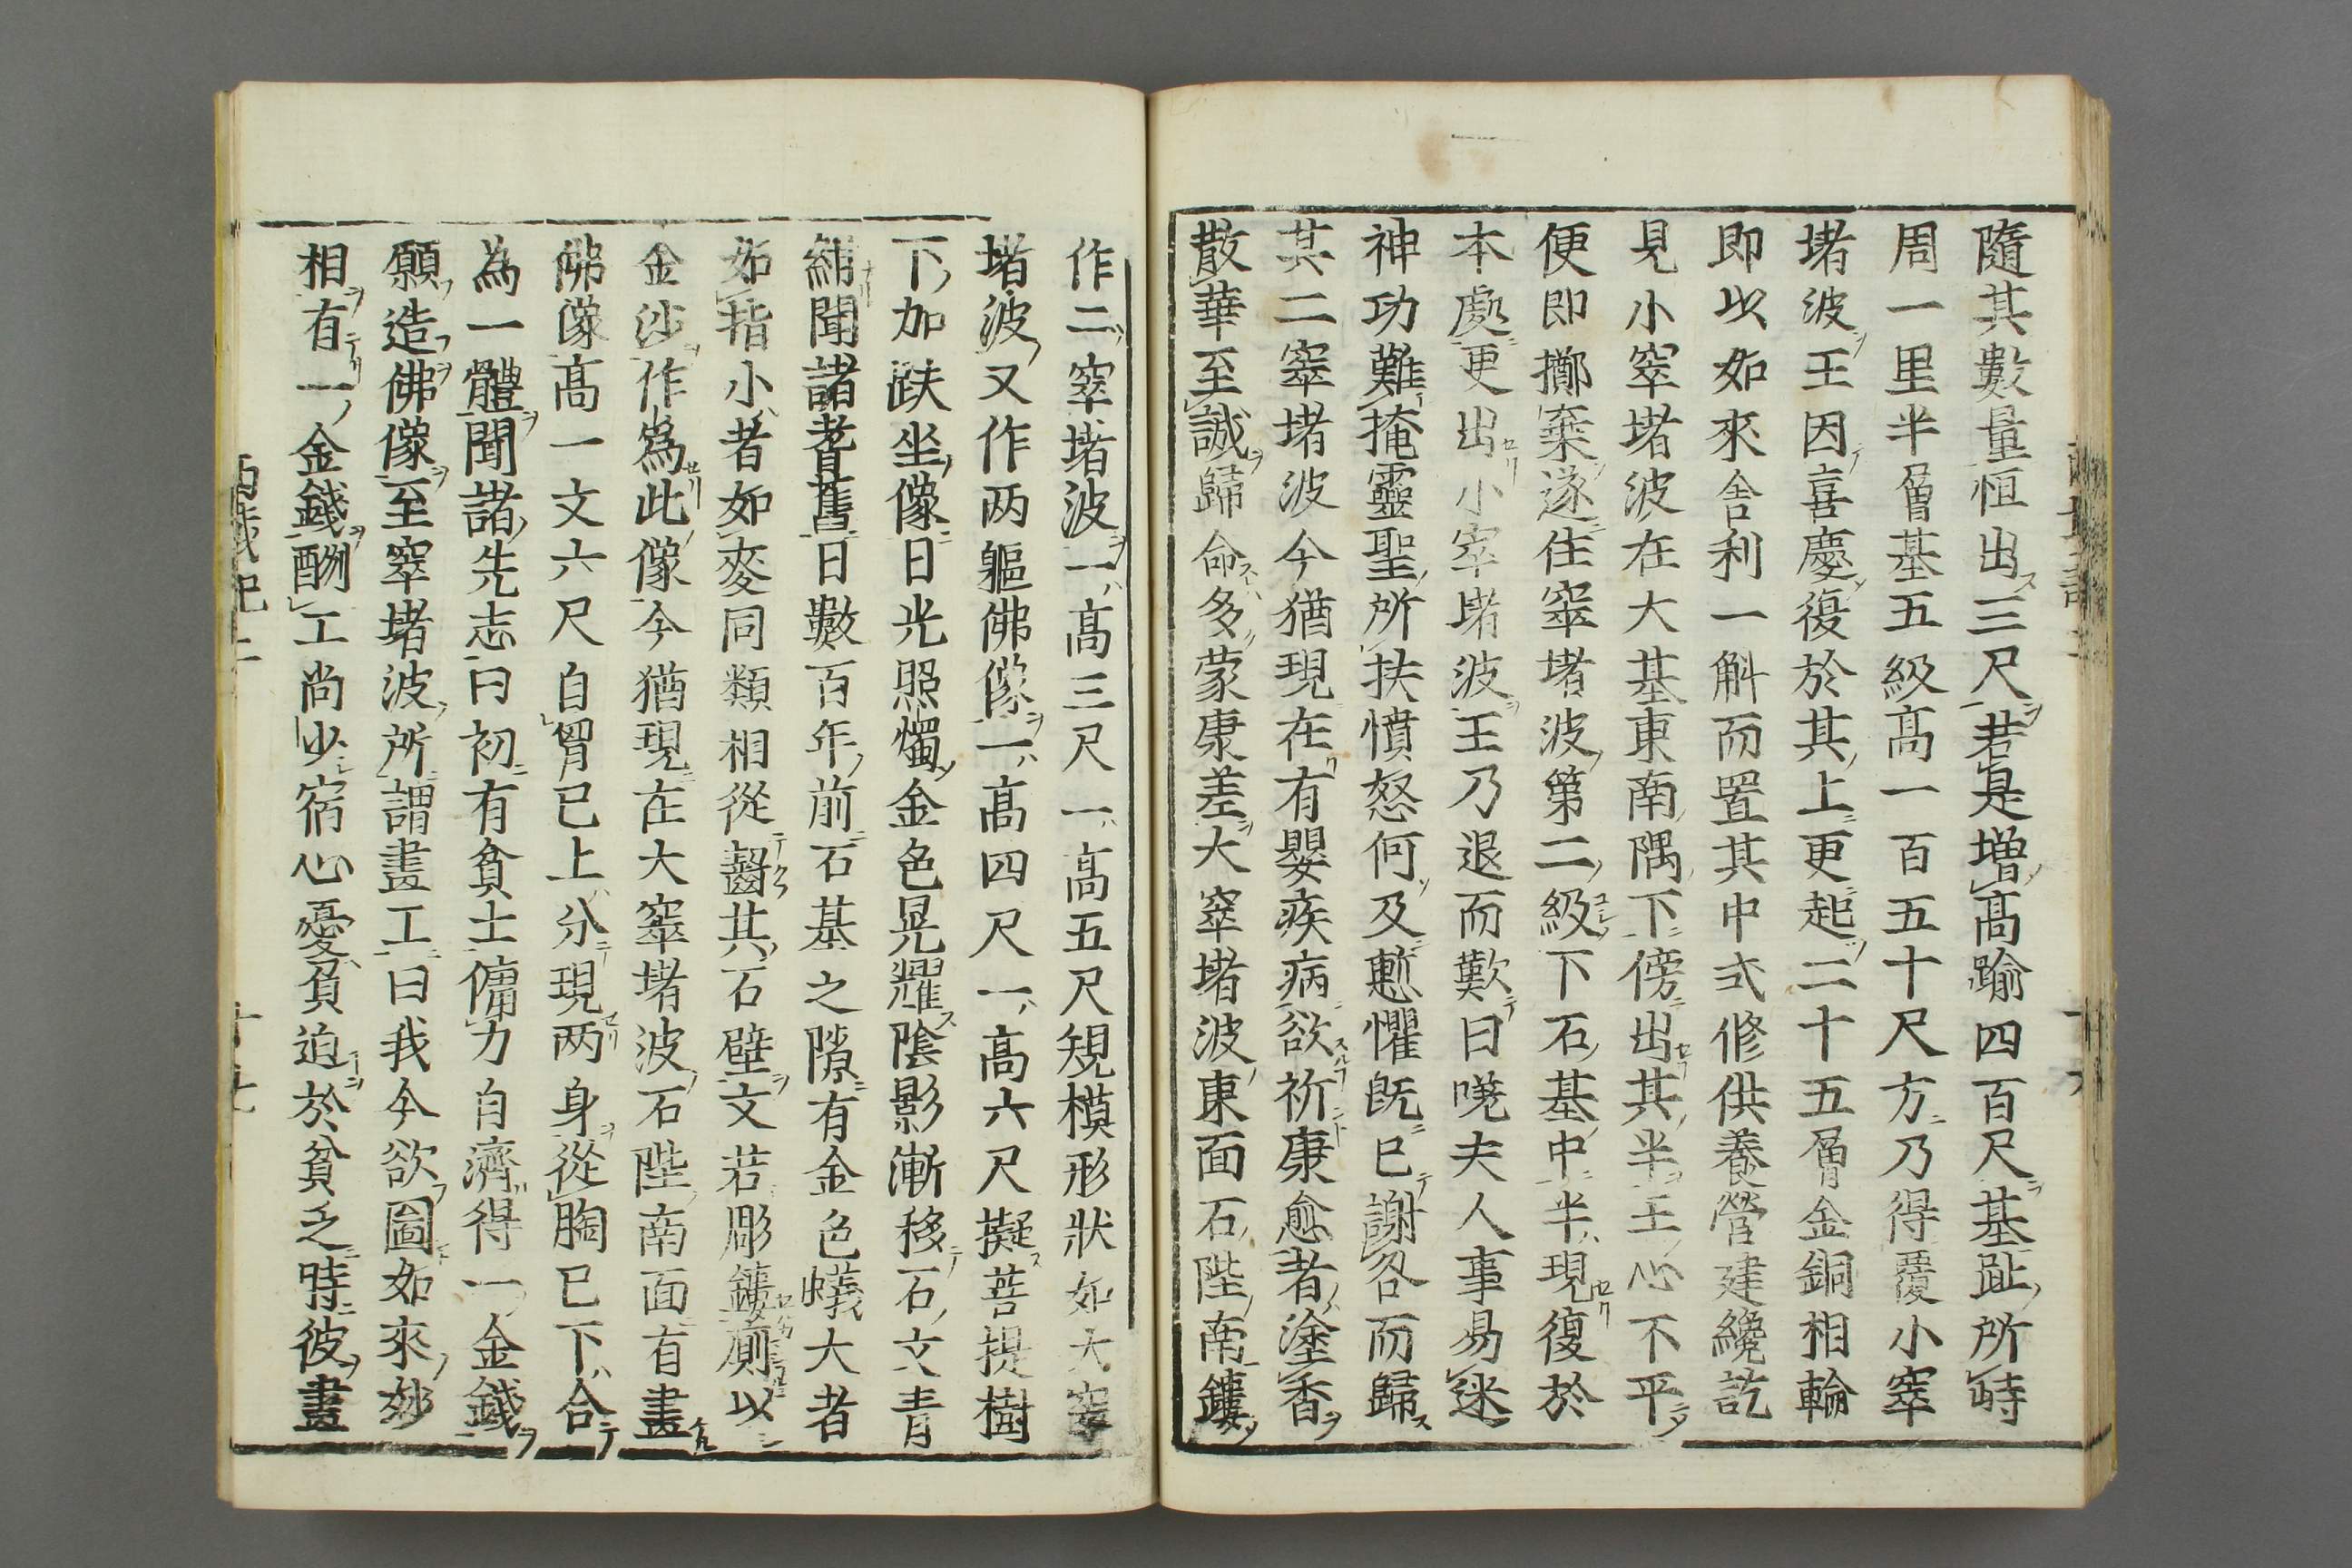 隨其數量恒出三尺若是増髙踰四百尺基趾所時
周一里半層基五級髙一百五十尺方乃得覆小窣
堵波王因喜慶復於其上更起二十五層金銅相輪
即以如來舎利一斛而置其中式修供養營建纔訖
見小窣堵波在大基東南隅下傍出其半王心不平
便即擲棄遂住窣堵波第二級下石基中半現復於
本處更出小窣堵波王乃退而歎曰嗟夫人事易迷
神功難掩靈聖所扶憤怒何及慙懼既已謝各而歸
其二窣堵波今猶現在有嬰疾病欲祈康愈者塗香
散華至誠歸命多蒙康差大窣堵波東面石陛南鏤
作二窣堵波一髙三尺一髙五尺䂓模形狀如大窣
堵波又作两軀佛像一髙四尺一髙六尺擬菩提樹
下加趺坐像日光照燭金色晃耀陰影漸移石文青
紺聞諸耆舊曰數百年前石基之隙有金色蟻大者
如指小者如麥同類相從齧其石壁文若彫鏤廁以
金沙作為此像今猶現在大窣堵波石陛南面有畫
佛像髙一丈六尺自胷已上分現两身從胸已下合
為一體聞諸先志曰初有貧士傭力自濟得一金錢
願造佛像至窣堵波所謂畫工曰我今欲圖如來妙
相有一金錢酬工尚少宿心憂負迫於貧乏時彼畫
西域記二